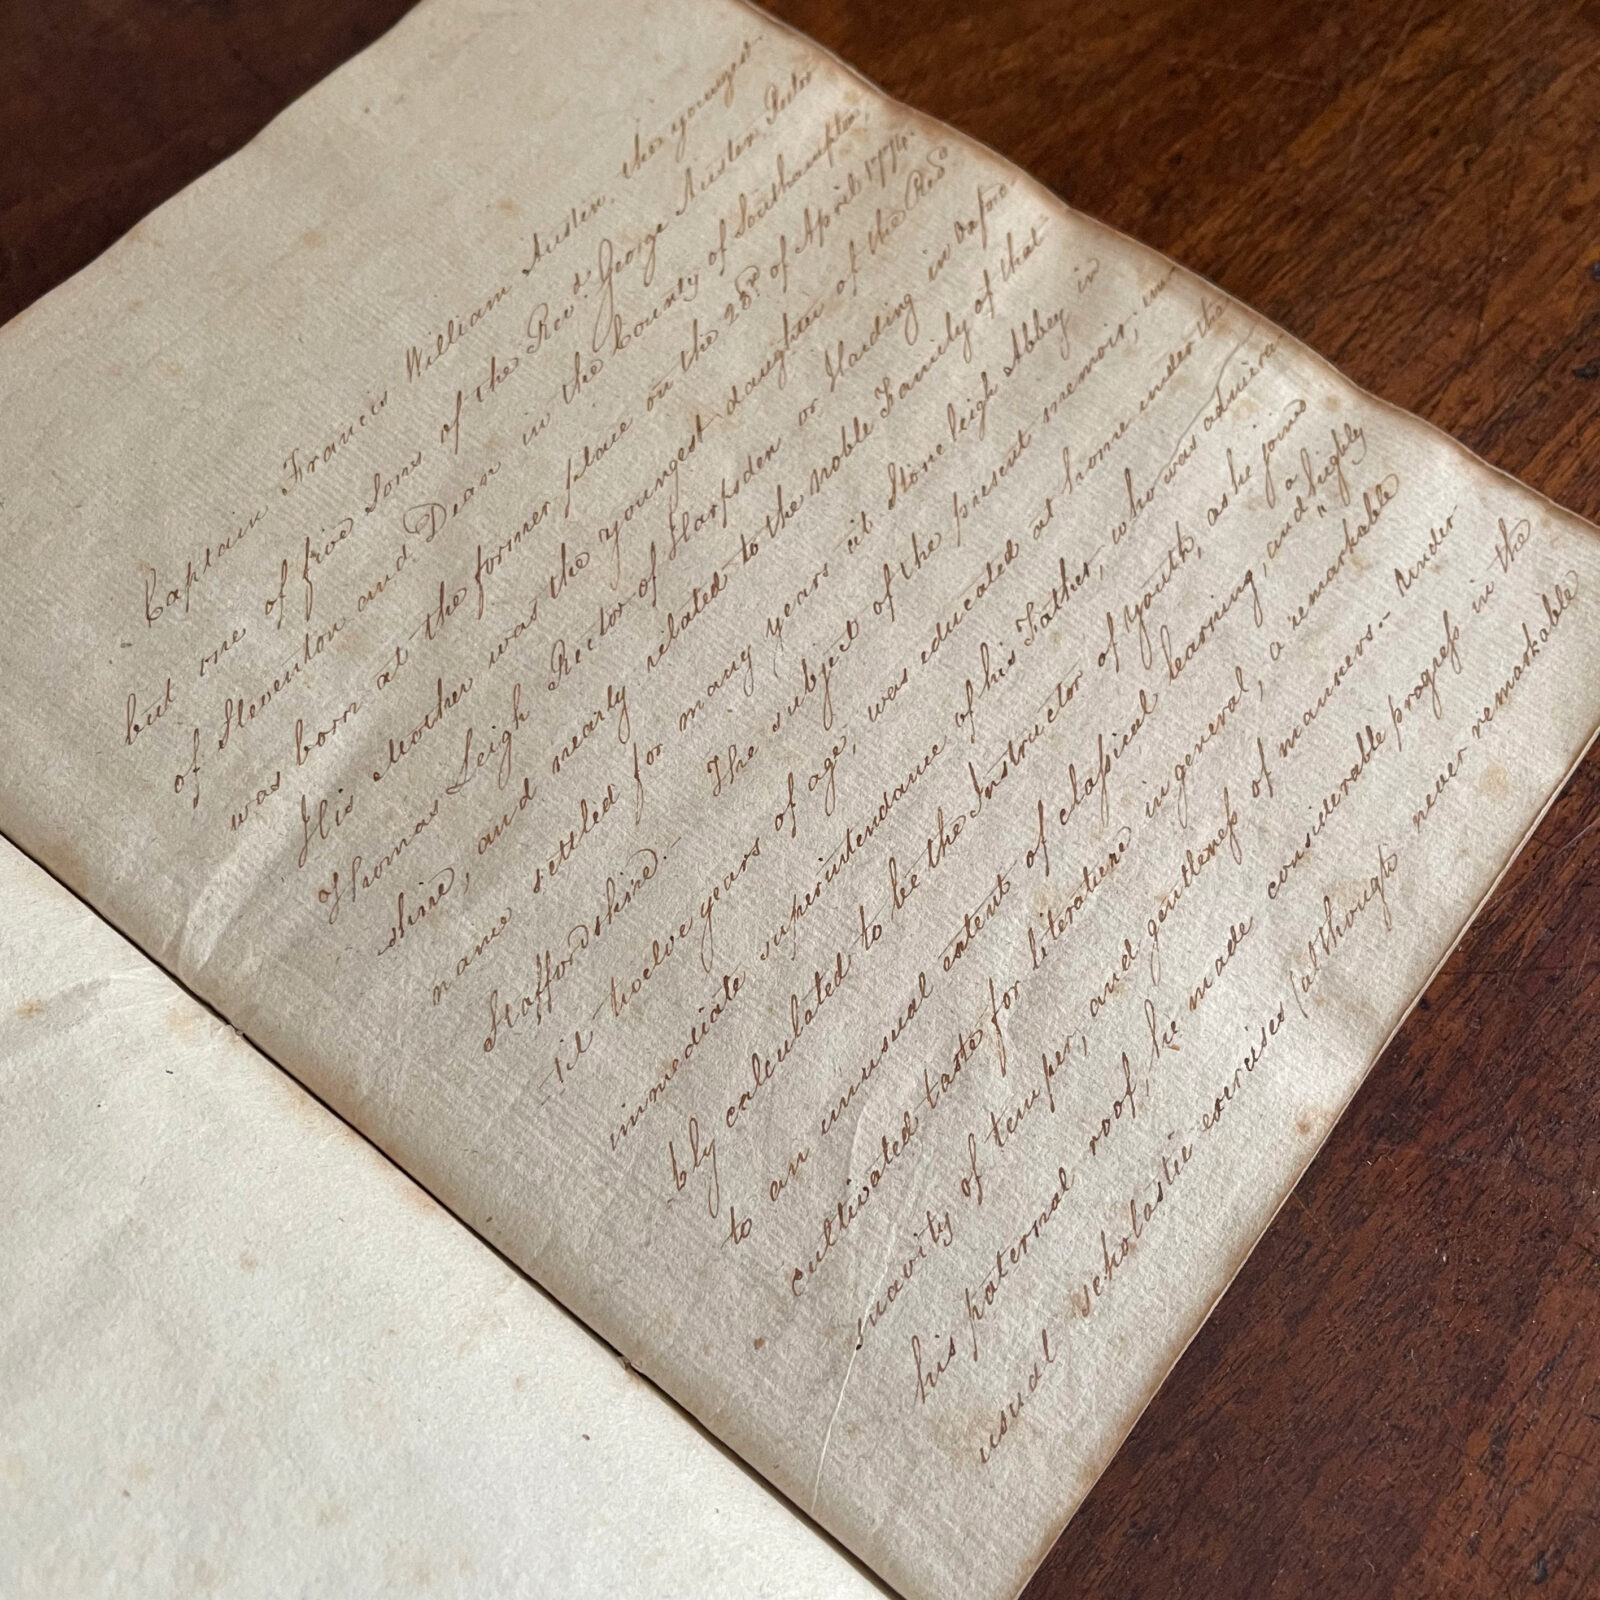 Captain Francis William Austen, the youngest
but one of five Sons of the Revd. George Austen Rector
of Steventon and Dean in the County of Southampton,
was born at the former place on the 23d. of April 1774.
His Mother was the youngest daughter of the Revd.
Thomas Leigh Rector of Harpsden or Harding in Oxford-
shire, and nearly related to the noble Family of that
name settled for many years at Stone leigh Abbey in
Staffordshire.- The subject of the present memoir, un-
-til twelve years of age, was educated at home under the
immediate superintendance of his Father, who was admira-
bly calculated to be the Instructor of youth, as he joined
to an unusual extent of classical learning, and a highly
cultivated taste for literature in general, a remarkable
suavity of temper, and gentleness of manners.- Under
his paternal roof, he made considerable progress in the
usual scholastic exercises (although never remarkable